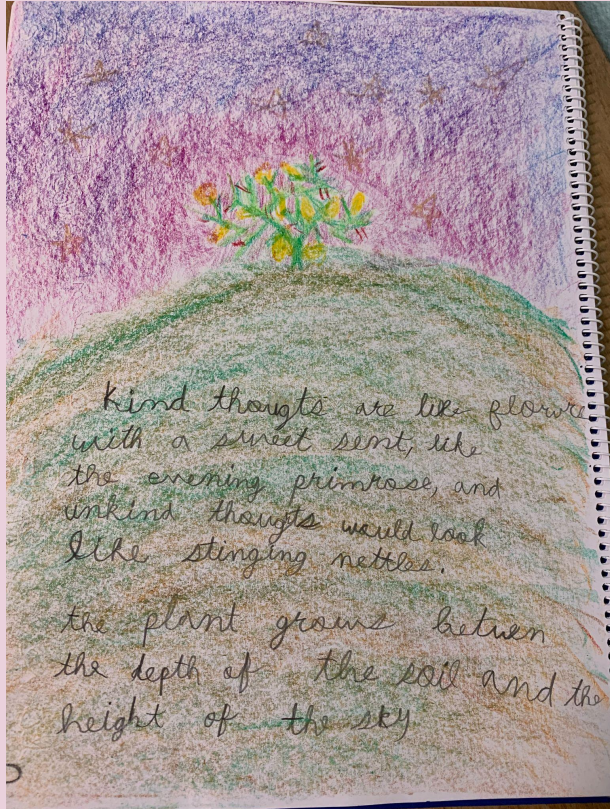 kind thougts are like flowrs
with a sweet sent, like
the evening primrose, and
unkind thougts would look
like stinging nettles.
the plant grows betwen
the depth of the soil and the
height of the sky